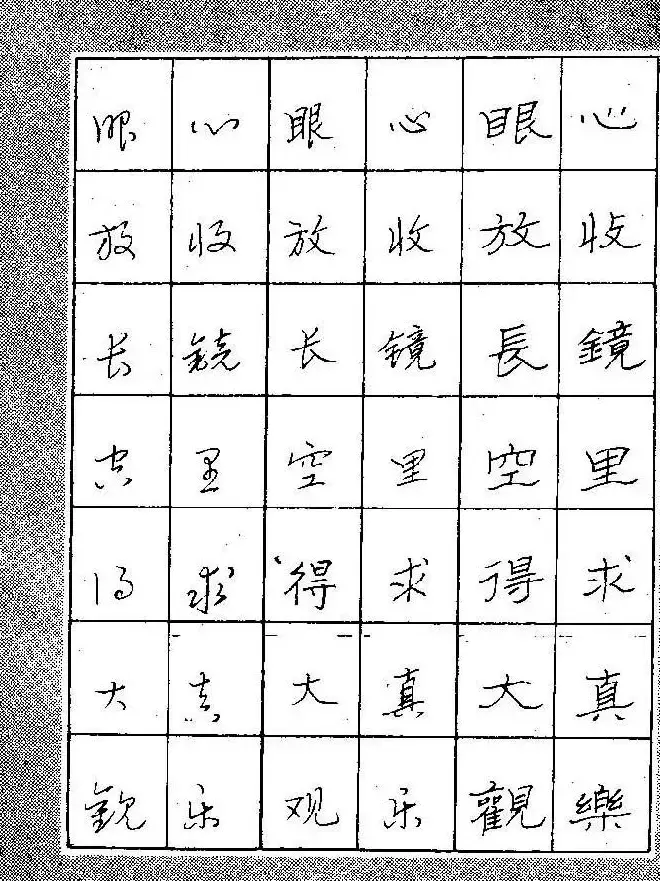 心收鏡里求真樂
眼放長空得大觀
心收镜里求真乐
眼放长空得大观
心收镜里求真乐
眼放长空得大观